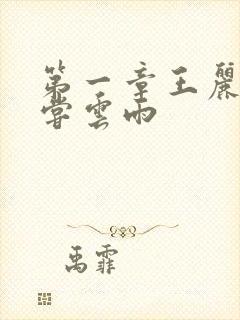 第一章王麗
嘗雲雨
禹霏